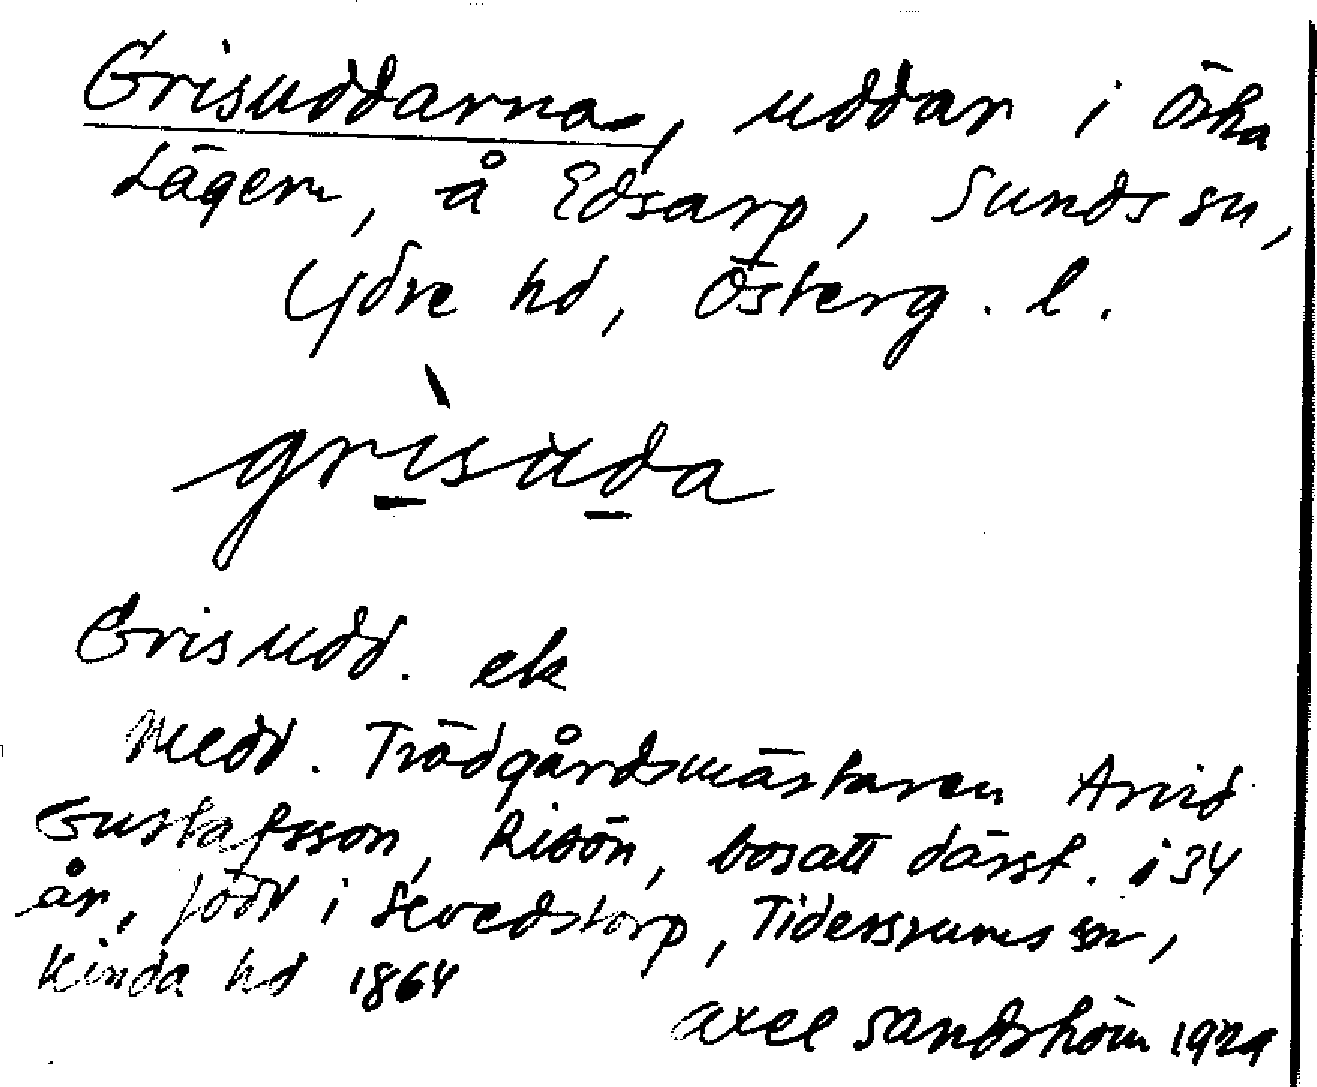 Grisuddarna, uddar i Östra
Lägern, å Edsarp, Sunds sn,
Ydre hd, Österg. l.
grìsùda
Grisudd. ek
Medd. Trädgårdsmästaren Arvid
Gustafsson, Ribön, bosatt därst. i 34
år, född i Sevedstorp, Tidersrums sn,
Kinda hd 1864
Axel Sandström 1929